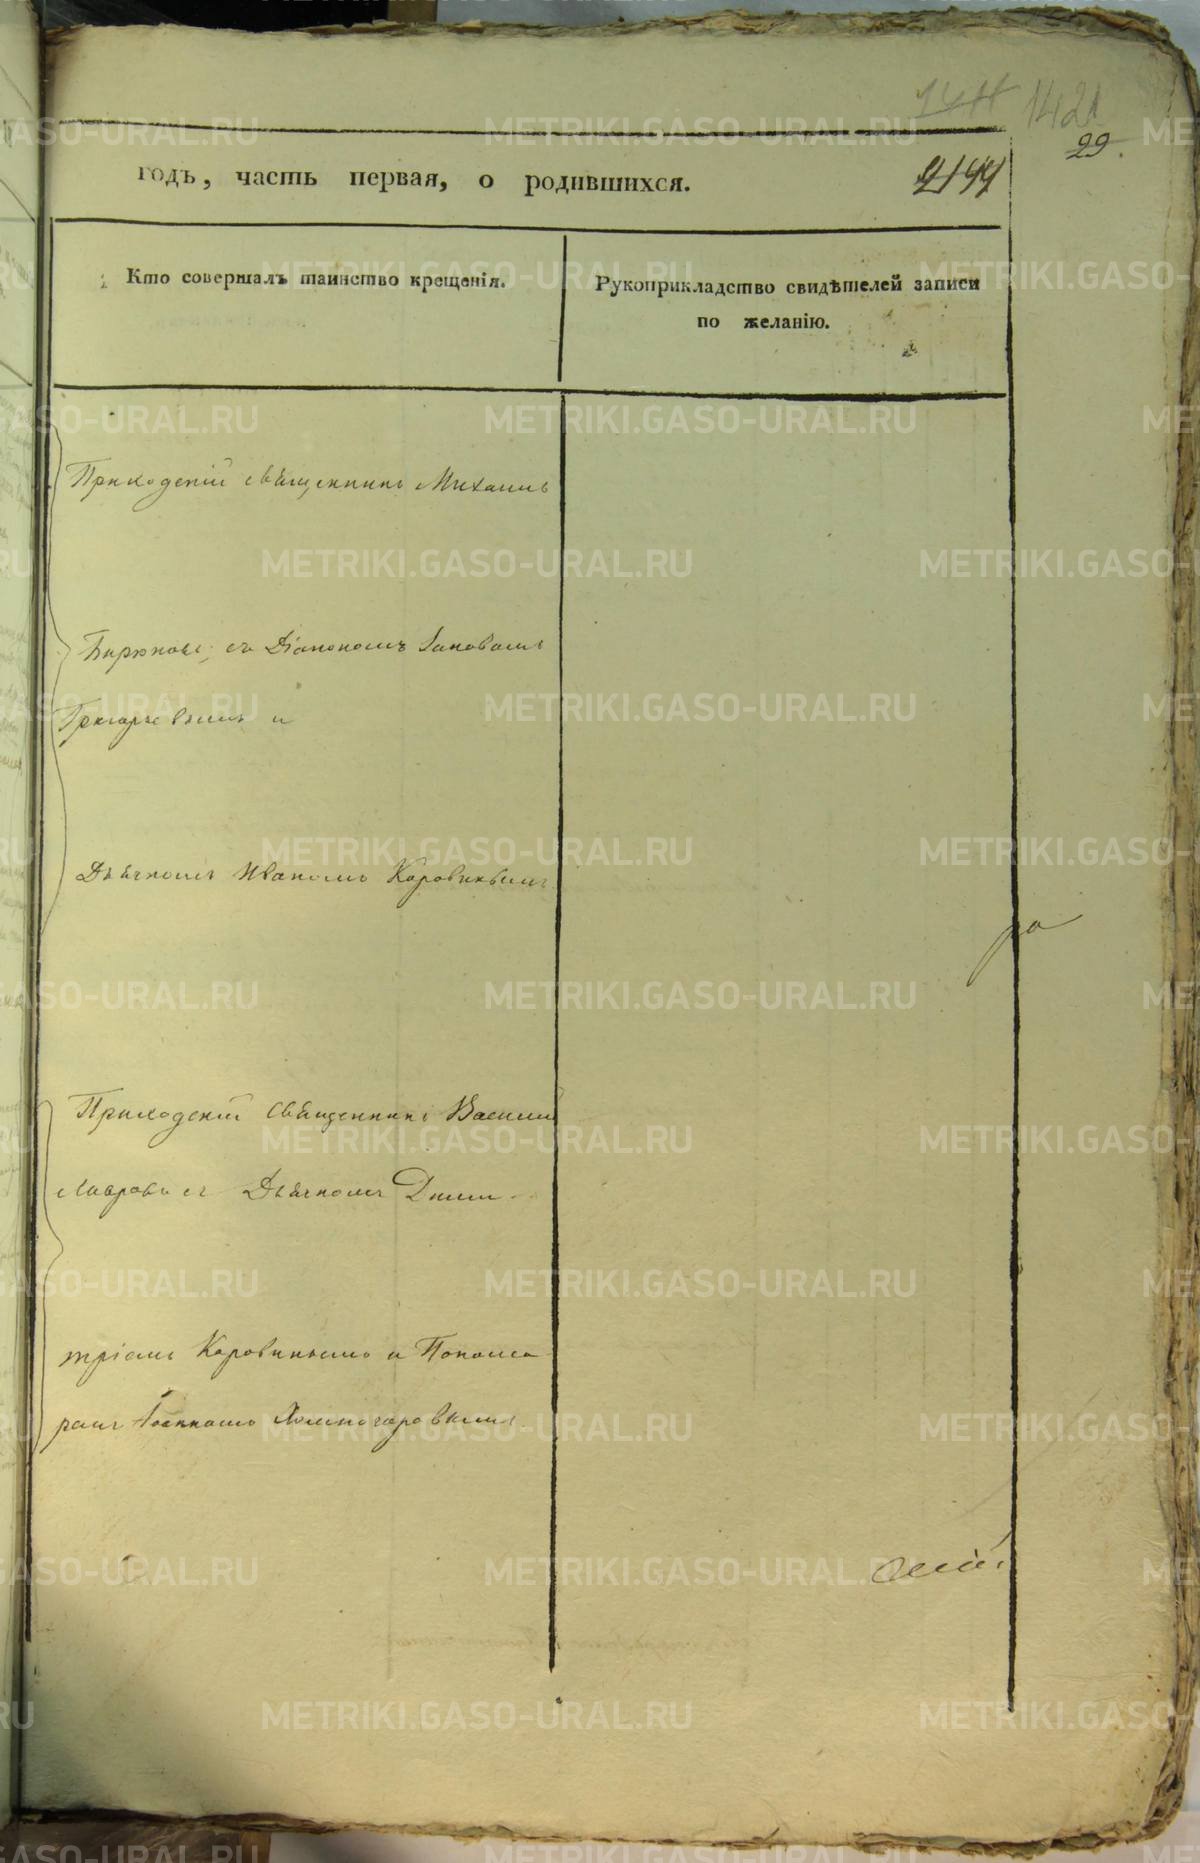 1421
29.
2144
годъ, часть первая, о родившихся.
Кто совершалъ таинство крещенія.
Рукоприкладство свидѣтелей записи
по желанію.
Приходскій священникъ Михаилъ
Бирюковъ, съ Діакономъ Іаковомъ
Григорьевымъ и
Дьячкомъ Иваномъ Коровинымъ
ра
Приходскій священникъ Василій
Лавровъ съ Дьячкомъ Дими-
тріемъ Коровинымъ и Понома-
ремъ Іоанномъ Холмогоровымъ
METRIKI.GASO-URAL.RU